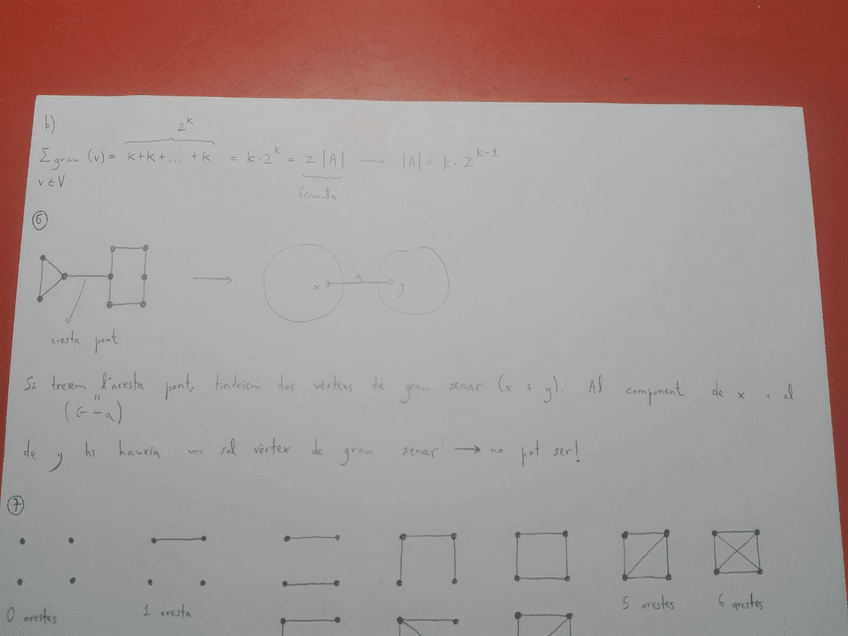 b)
2^k
Σ grau (v) = k+k+... +k = k·2^k = 2|A| → |A| = k·2^(k-1)
v∈V
fórmula
6
x a y
aresta pont
Si treiem l'aresta pont, tindríem dos vèrtexs de grau senar (x i y). Al component de x i al
(G-a)
de y hi hauria un sol vèrtex de grau senar → no pot ser!
7
0 arestes 1 aresta 5 arestes 6 arestes